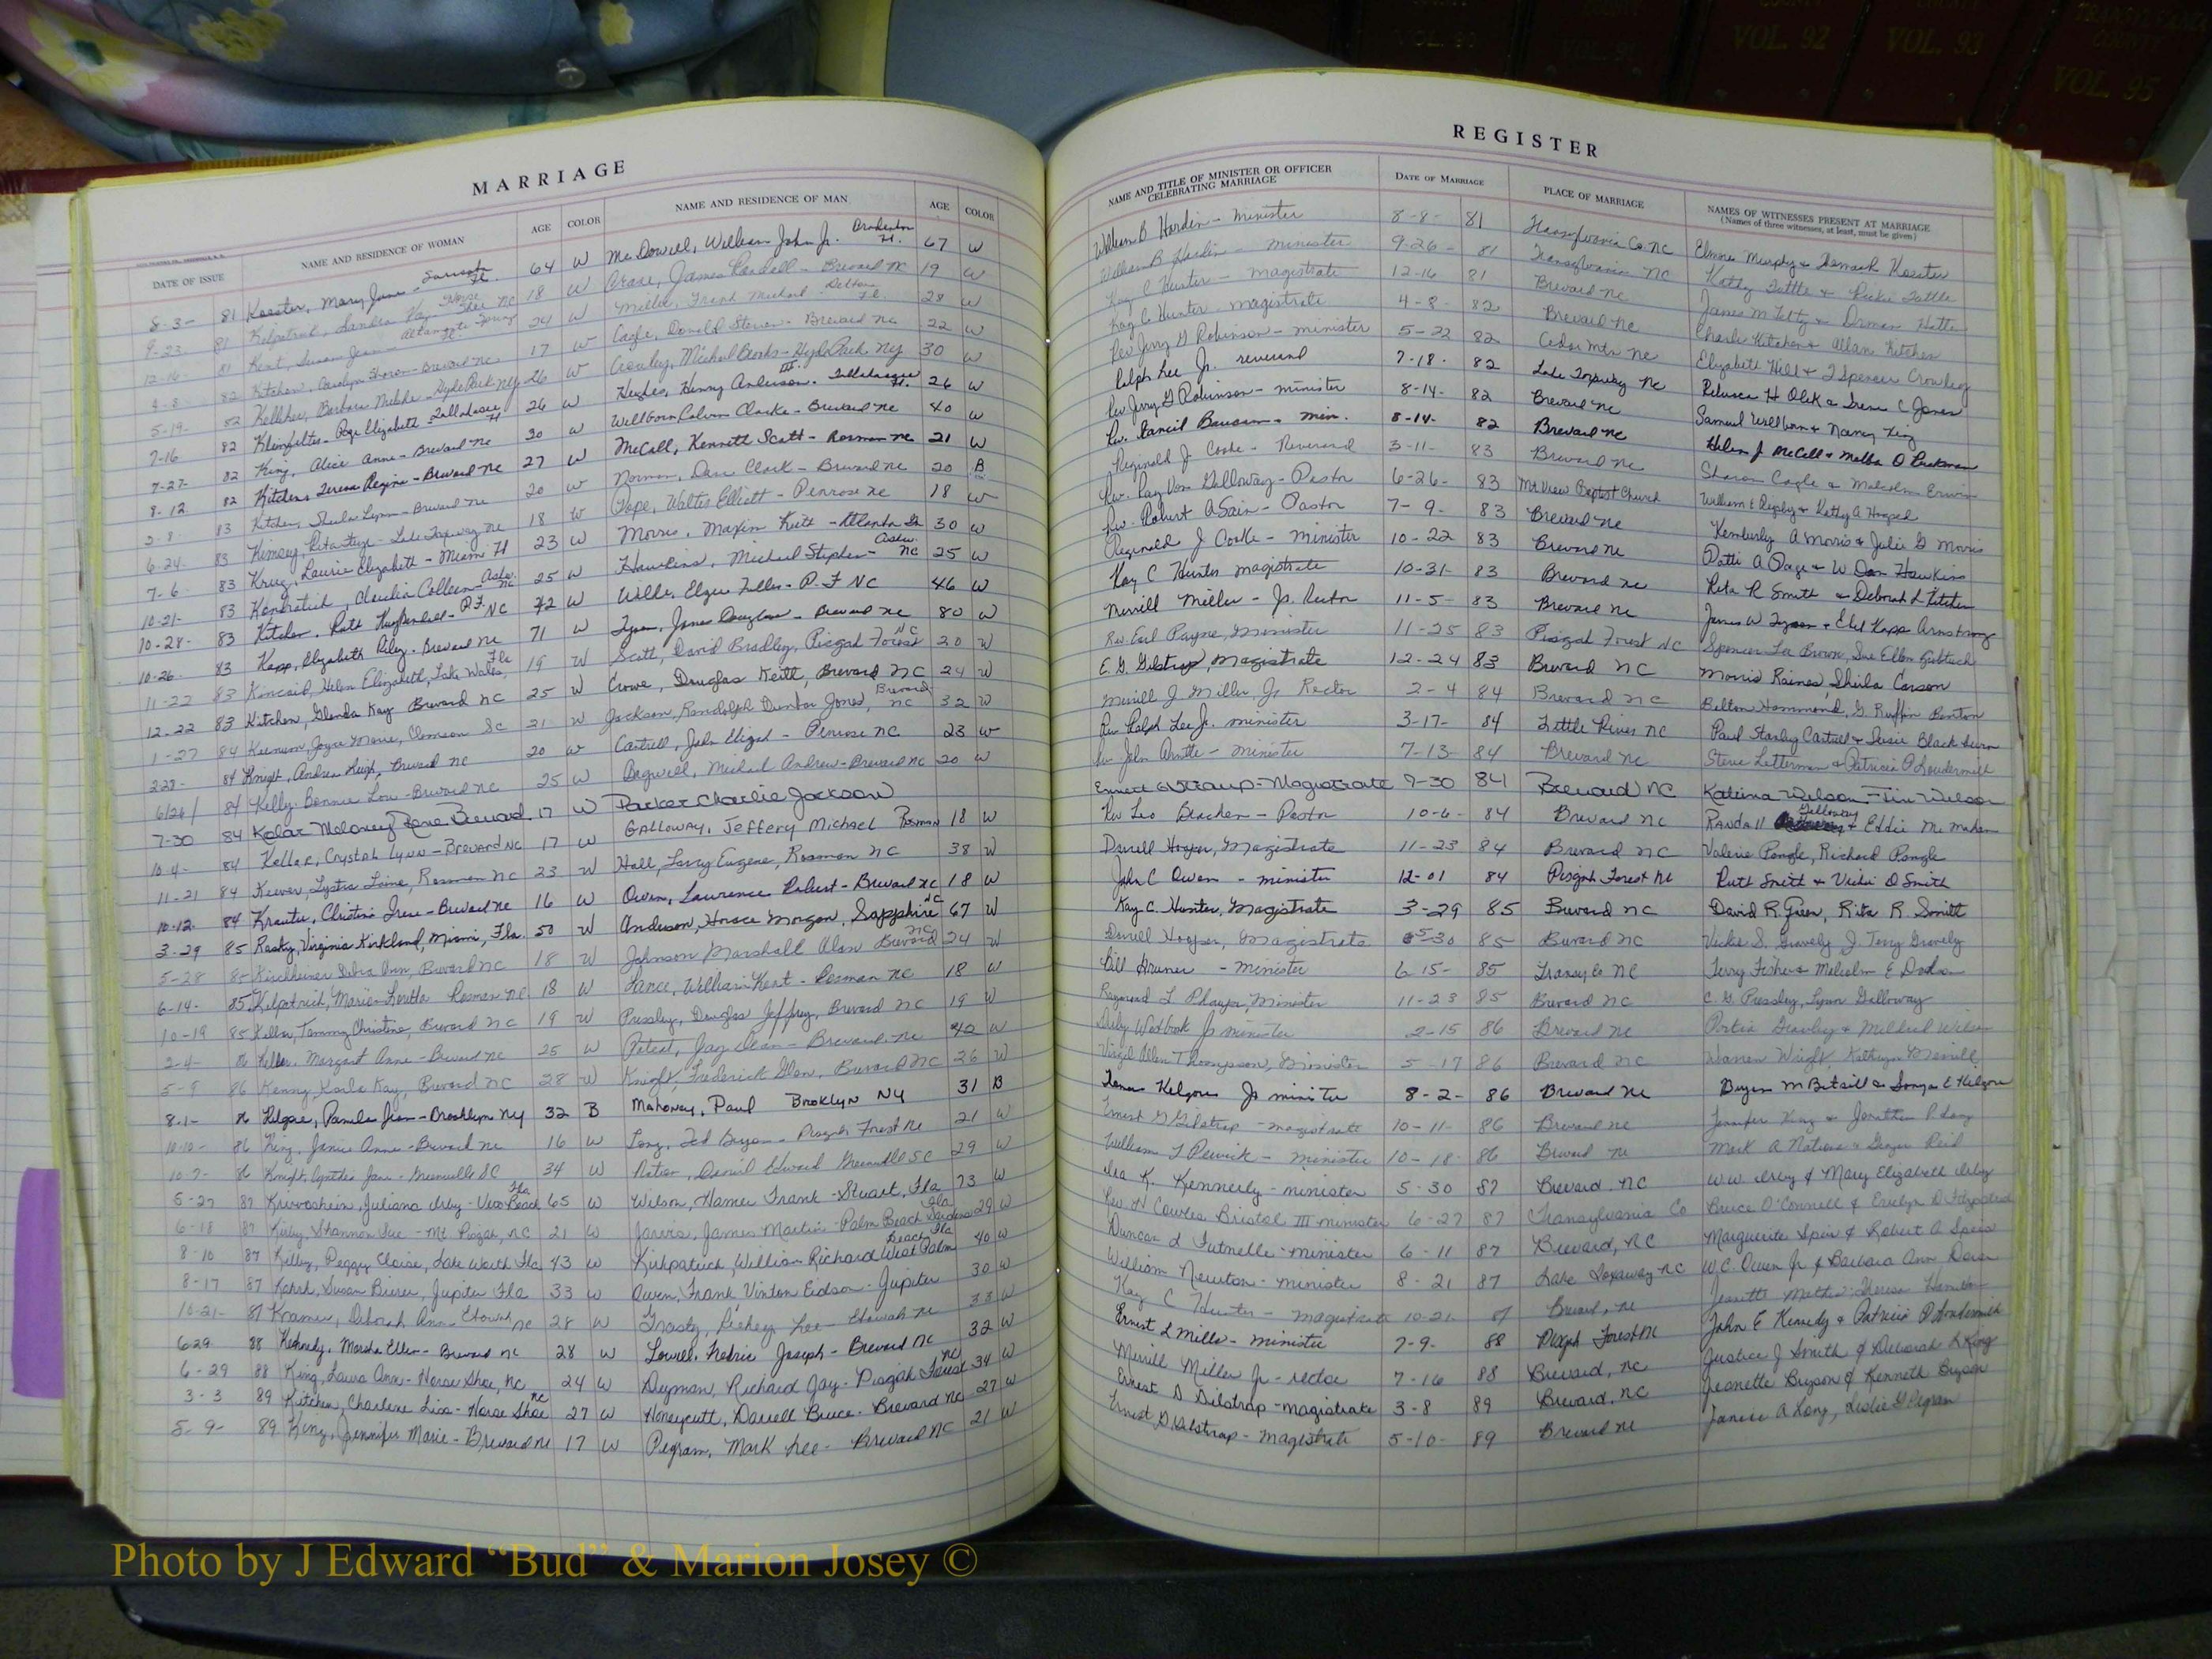 VOL. 92
VOL. 93
VOL. 95
MARRIAGE
REGISTER
DATE OF ISSUE
NAME AND RESIDENCE OF WOMAN
AGE
COLOR
NAME AND RESIDENCE OF MAN
AGE
COLOR
NAME AND TITLE OF MINISTER OR OFFICER CELEBRATING MARRIAGE
DATE OF MARRIAGE
PLACE OF MARRIAGE
NAMES OF WITNESSES PRESENT AT MARRIAGE
(Names of three witnesses, at least, must be given)
8-3- 81 Koester, Mary Jane - 64 W McDowell, William John Jr. 67 W William B Hardin - minister 8-8- 81 Transylvania Co. NC Elmina Murphy & Koester
9-23 81 18 W James Randall - Brevard NC 19 W William B Hardin - minister 9-26- 81 Transylvania NC Kathy Tuttle & Tuttle
12-16 81 Kent, Susan Jean 24 W Miller, Frank Michael - Deltona Fl. 28 W Kay C Hunter - magistrate 12-16 81 Brevard NC James M &
4-8 82 Kitchen, Carolyn Sharon - Brevard NC 17 W Cagle, Donald Steven - Brevard NC 22 W Kay C Hunter - magistrate 4-8- 82 Brevard NC Charlie Kitchen & Allan Kitchen
5-19- 82 Kelliher, Barbara - Hyde Park NY 26 W Crowley, Michael Brooks - Hyde Park NY 30 W Rev Jerry G Robinson - minister 5-22 82 Cedar Mtn NC Elizabeth Hill & J Spencer Crowley
7-16 82 Page Elizabeth - Tallahassee Fl 26 W Hughes, Henry Anderson III - Tallahassee Fl. 26 W Ralph Lee Jr. reverend 7-18- 82 Lake Toxaway NC Rebecca H & Irene C Jones
7-27- 82 King, Alice Anne - Brevard NC 30 W Wellborn Calvin Clarke - Brevard NC 40 W Rev Jerry G Robinson - minister 8-14- 82 Brevard NC Samuel Wellborn & Nancy King
8-12 82 Kitchen, Teresa Regina - Brevard NC 27 W McCall, Kenneth Scott - Rosman NC 21 W Rev. - min. 8-14- 82 Brevard NC Helen J McCall & Melba O
2-8- 83 Kitchen, Sheila Lynn - Brevard NC 20 W Norman, Clark - Brevard NC 20 B Reginald J Cooke - Reverend 3-11- 83 Brevard NC Sharon Cagle & Malcolm Erwin
6-24- 83 Kimsey, Rita Faye - Lake Toxaway NC 18 W Pope, Walter Elliott - Penrose NC 18 W Rev. Ray Von Galloway - Pastor 6-26- 83 Mt View Baptist Church William E & Kathy A
7-6- 83 Krug, Laurie Elizabeth - Miami Fl 23 W Morris, Kitt - Atlanta Ga 30 W Rev. Robert A Sain - Pastor 7-9- 83 Brevard NC Kemberly A Morris & Julie G Morris
10-21- 83 Claudia Colleen - NC 25 W Hawkins, Michael Stephen - NC 25 W Reginald J Cooke - minister 10-22 83 Brevard NC Patti A Page & W Dan Hawkins
10-28- 83 Kitchen, Ruth - P.F. NC 42 W - P.F NC 46 W Kay C Hunter magistrate 10-31- 83 Brevard NC Rita R Smith & Deborah L Kitchen
10-26- 83 Kapp, Elizabeth Riley - Brevard NC 71 W Tyson, James Douglas - Brevard NC 80 W Merrill Miller - Jr. Rector 11-5- 83 Brevard NC James W Tyson & Kapp Armstrong
11-22 83 Kincaid, Helen Elizabeth, Lake Wales, Fla 19 W Scott, David Bradley, Pisgah Forest NC 20 W Rev. Earl Payne, Minister 11-25 83 Pisgah Forest NC Spencer Lee Brown, Sue Ellen
12-22 83 Kitchen, Glenda Kay Brevard NC 25 W Crowe, Douglas Keith, Brevard NC 24 W E. G. Gilstrap, Magistrate 12-24 83 Brevard NC Morris Raines, Sheila Carson
1-27 84 Joyce Marie, Clemson SC 21 W Jackson, Randolph Dunbar Jones, Brevard NC 32 W Merrill J Miller, Jr Rector 2-4 84 Brevard NC Belton Hammond, G. Ruffin
2-28- 84 Knight, Andrea Leigh, Brevard NC 20 W Cantrell, John - Penrose NC 23 W Rev Ralph Lee Jr. minister 3-17- 84 Little River NC Paul Stanley Cantrell & Susie Black
6/26/ 84 Kelly, Bonnie Lou - Brevard NC 25 W Bagwell, Michael Andrew - Brevard NC 20 W Rev John - minister 7-13- 84 Brevard NC Steve Letterman & Patricia P Loudermilk
7-30 84 Brevard. 17 W Parker Charlie Jackson Emmett Gilstrap - Magistrate 7-30 84 Brevard NC Katrina Wilson - Tim Wilson
10-4- 84 Keller, Crystal Lynn - Brevard NC 17 W Galloway, Jeffery Michael Rosman 18 W Rev Leo - Pastor 10-6- 84 Brevard NC Randall Galloway & Eddie McMahan
11-21 84 Keever, Laine, Rosman NC 23 W Hall, Larry Eugene, Rosman NC 38 W Darrell Hooper, Magistrate 11-23 84 Brevard NC Valerie Pangle, Richard Pangle
10-12 84 Krauter, Christina Irene - Brevard NC 16 W Owen, Lawrence Robert - Brevard NC 18 W John C Owen - minister 12-01 84 Pisgah Forest NC Ruth Smith & Vickie D Smith
3-29 85 Virginia Kirkland, Miami, Fla. 50 W Anderson, Horace Morgan, Sapphire NC 67 W Kay C. Hunter, Magistrate 3-29 85 Brevard NC David R. Green, Rita R. Smith
5-28 85 Debra Ann, Brevard NC 18 W Johnson Marshall Alan Brevard NC 24 W Darrell Hooper, Magistrate 5-30 85 Brevard NC Vickie S. Gravely J. Terry Gravely
6-14- 85 Kilpatrick, Rosman NC 18 W Lance, William Kent - Rosman NC 18 W Bill - minister 6-15- 85 Transy Co NC Terry Fisher & Malcolm E
10-19 85 Keller, Tammy Christine, Brevard NC 19 W Pressley, Douglas Jeffrey, Brevard NC 19 W Raymond L Player, Minister 11-23 85 Brevard NC C. G. Pressley, Lynn Galloway
2-4- 86 Keller, Margaret Anne - Brevard NC 25 W Poteat, Jay Dean - Brevard NC 42 W Jr minister 2-15 86 Brevard NC Portia Gravley & Mildred
5-9 86 Kenny, Karla Kay, Brevard NC 28 W Knight, Frederick Glen, Brevard NC 26 W Virgil Allen Thompson, Minister 5-17 86 Brevard NC Warren Wright, Kathryn Merrill
8-1- 86 Kilgore, Pamela Jean - Brooklyn NY 32 B Mahoney, Paul Brooklyn NY 31 B Kilgore Jr minister 8-2- 86 Brevard NC Bryan M & Sonya E Kilgore
10-10- 86 King, Janice Anne - Brevard NC 16 W Long, Ted Bryan - Pisgah Forest NC 21 W Ernest G Gilstrap - magistrate 10-11- 86 Brevard NC Jennifer King & Jonathan P Long
10-7- 86 Knight, Cynthia Jane - Greenville SC 34 W Nation, Daniel Edward Greenville SC 29 W William L - minister 10-18- 86 Brevard NC Mark A Nation & Ginger Reid
5-27 87 Krivoshein, Juliana Irby - Vero Beach Fla 65 W Wilson, Homer Frank - Stuart, Fla 73 W Ira K. Kennerly - minister 5-30 87 Brevard, NC W.W. Irby & Mary Elizabeth Irby
6-18 87 Kirby, Shannon Sue - Mt Pisgah, NC 21 W Jarvis, James Martin - Palm Beach Gardens Fla 29 W Rev. H Cowles Bristol III minister 6-27 87 Transylvania Co Bruce O'Connell & Evelyn D Fitzpatrick
8-10 87 Kelly, Peggy Eloise, Lake Worth Fla 43 W Kirkpatrick, William Richard West Palm Beach Fla 40 W Duncan L - minister 6-11 87 Brevard, NC Marguerite & Robert A
8-17 87 Susan Brier, Jupiter Fla 33 W Owen, Frank Vinton Eidson - Jupiter 30 W William Newton - minister 8-21 87 Lake Toxaway NC W.C. Owen Jr & Barbara Ann
10-21- 87 Kramer, Deborah Ann Etowah NC 28 W Trasty, Richey Lee - Etowah NC 33 W Kay C Hunter - magistrate 10-21- 87 Brevard, NC
6-29- 88 Kennedy, Marsha Ellen - Brevard NC 28 W Lowell, Fredric Joseph - Brevard NC 32 W Ernest L Mills - minister 7-9- 88 Pisgah Forest NC John E Kennedy & Patricia P Loudermilk
6-29 88 King, Laura Ann - Horse Shoe, NC 24 W Dryman, Richard Jay - Pisgah Forest NC 34 W Merrill Miller Jr - rector 7-16 88 Brevard, NC Justice J Smith & Deborah L King
3-3 89 Kitchen, Charlene Lisa - Horse Shoe NC 27 W Honeycutt, Darrell Bruce - Brevard NC 27 W Ernest D Gilstrap - magistrate 3-8 89 Brevard, NC Jeanette Bryson & Kenneth Bryson
5-9- 89 King, Jennifer Marie - Brevard NC 17 W Pegram, Mark Lee - Brevard NC 21 W Ernest G Gilstrap - Magistrate 5-10- 89 Brevard NC Janice A Long, Leslie G Pegram
Photo by J Edward “Bud” & Marion Josey ©